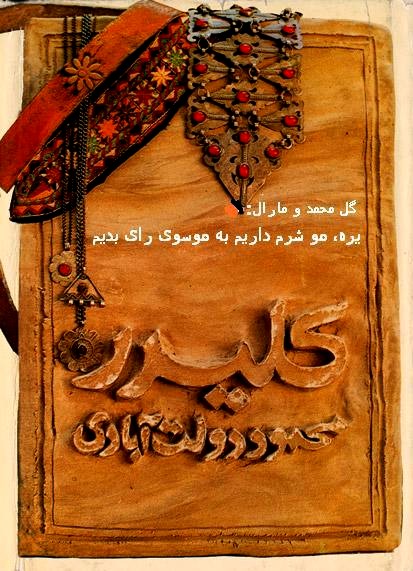 گل محمد و مارال:
یره، مو شرم داریم به موسوی رای بدیم
کلیدر
محمود دولت آبادی